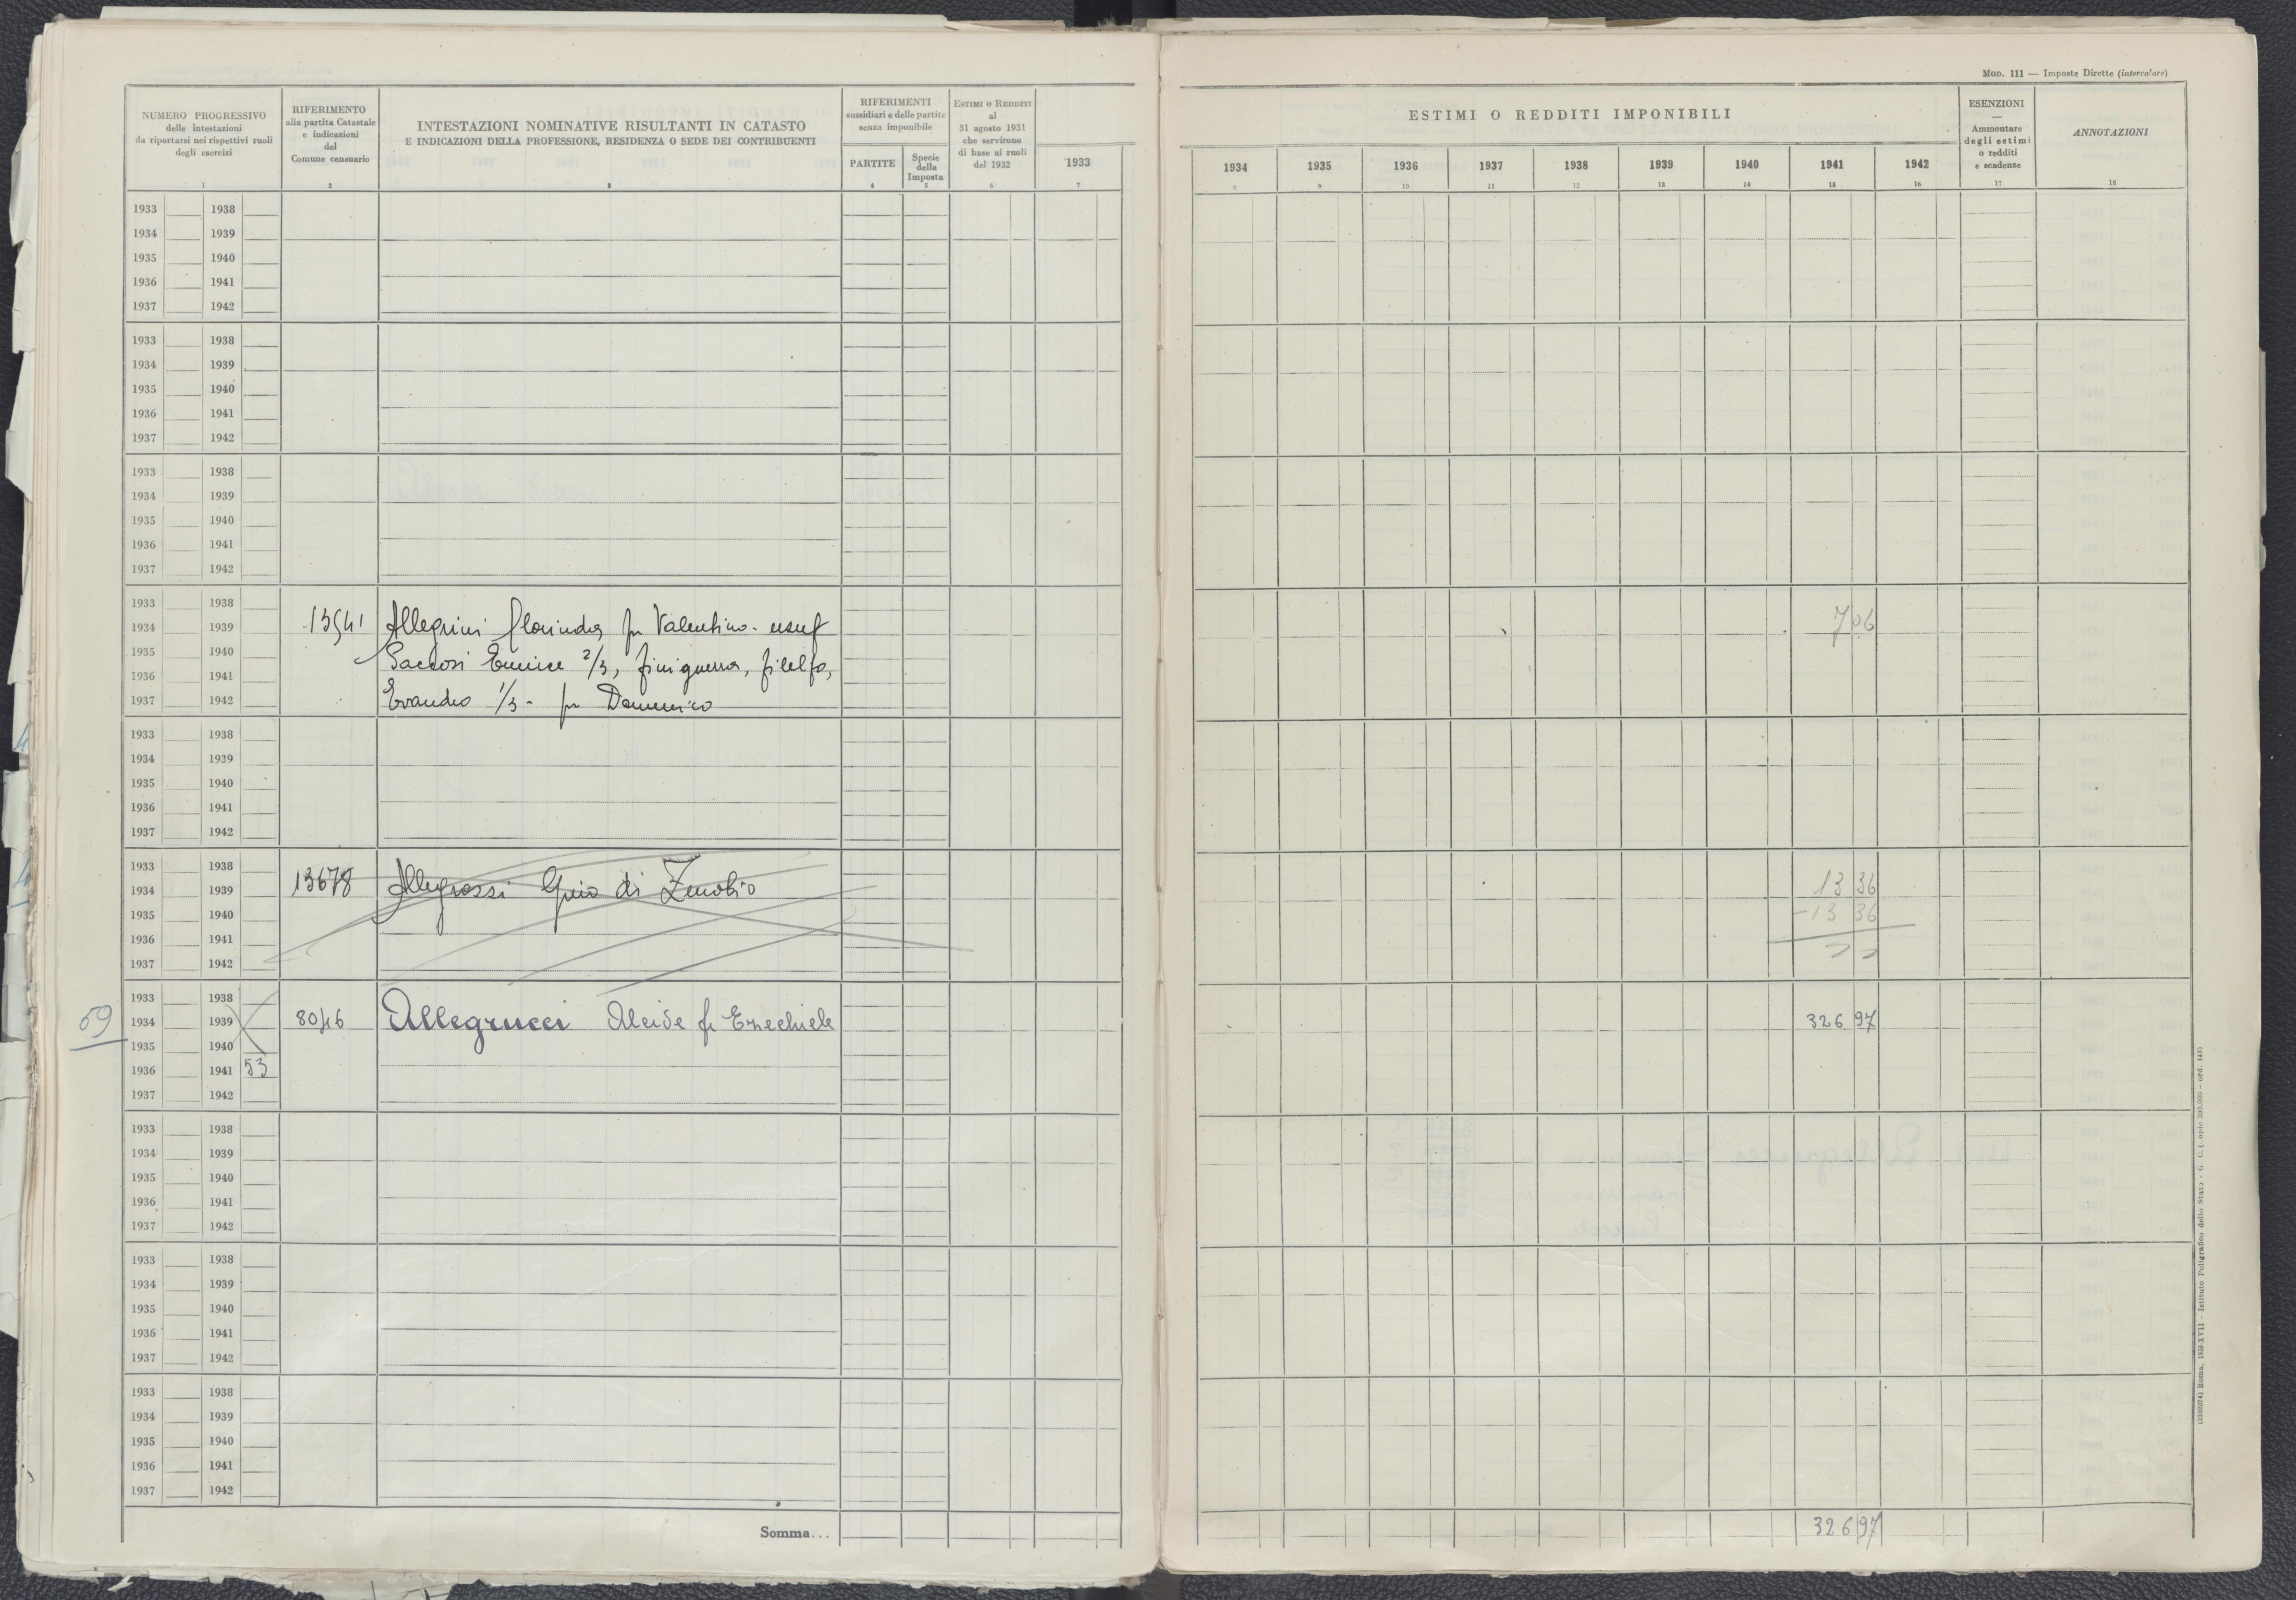 Mod. 111 — Imposte Dirette (intercalare)
NUMERO PROGRESSIVO
delle intestazioni
da riportarsi nei rispettivi ruoli
degli esercizi
1
RIFERIMENTO
alla partita Catastale
e indicazioni
del
Comune censuario
2
INTESTAZIONI NOMINATIVE RISULTANTI IN CATASTO
E INDICAZIONI DELLA PROFESSIONE, RESIDENZA O SEDE DEI CONTRIBUENTI
3
RIFERIMENTI
sussidiari e delle partite
senza imponibile
PARTITE
4
Specie
della
Imposta
5
Estimi o Redditi
al
31 agosto 1931
che servirono
di base ai ruoli
del 1932
6
1933
7
ESTIMI O REDDITI IMPONIBILI
1934 1935 1936 1937 1938 1939 1940 1941 1942
8 9 10 11 12 13 14 15 16
ESENZIONI
—
Ammontare
degli estimi
o redditi
e scadenze
17
ANNOTAZIONI
18
1933 1938
1934 1939
1935 1940
1936 1941
1937 1942
1933 1938
1934 1939
1935 1940
1936 1941
1937 1942
1933 1938
1934 1939
1935 1940
1936 1941
1937 1942
1933 1938
1934 1939 13541 Allegrini Florinda fu Valentino - usuf 7 06
1935 1940 Eunice 2/3, finiguerra, filelfo,
1936 1941
1937 1942 Evandro 1/3 - fu Domenico
1933 1938
1934 1939
1935 1940
1936 1941
1937 1942
1933 1938
1934 1939 13678 Allegrossi di Zenobio 13 36
1935 1940 -13 36
1936 1941
1937 1942
1933 1938
59 1934 1939 8046 Allegrucci Alcide fu Ezechiele 326 97
1935 1940
1936 1941 53
1937 1942
1933 1938
1934 1939
1935 1940
1936 1941
1937 1942
1933 1938
1934 1939
1935 1940
1936 1941
1937 1942
1933 1938
1934 1939
1935 1940
1936 1941
1937 1942
Somma... 326 97